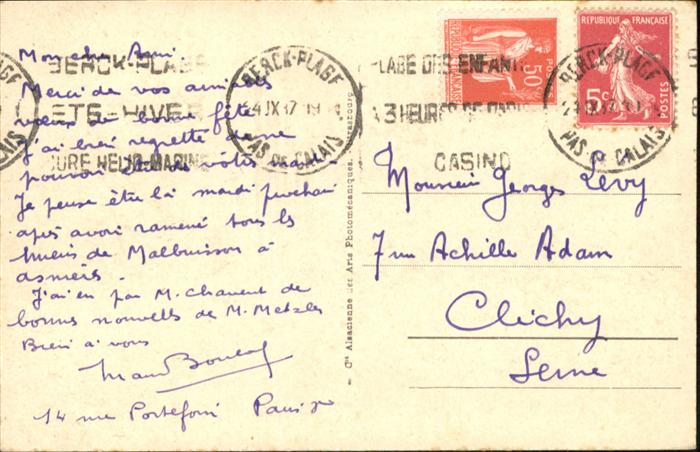 Mon cher Ami
Merci de vos amicales
vœux de bonne fête
J'ai bien regretté de ne
pouvoir être à vos côtés mardi
Je pense être là mardi prochain
après avoir ramené tous les
miens de Malbuisson à
asnières.
J'ai eu par M. Chauvent de
bonnes nouvelles de M. Metzler
Bien à vous
14 rue Portefoin Paris 3e
Cie Alsacienne des Arts Photomécaniques, Strasbourg
BERCK-PLAGE
ETE-HIVER
CURE HELIO-MARINE
BERCK-PLAGE
24 IX 37
PAS DE CALAIS
PLAGE DES ENFANTS
A 3 HEURES DE PARIS
CASINO
POSTES
50c
REPUBLIQUE FRANÇAISE
5c
POSTES
BERCK-PLAGE
PAS DE CALAIS
Monsieur Georges Levy
7 rue Achille Adam
Clichy
Seine